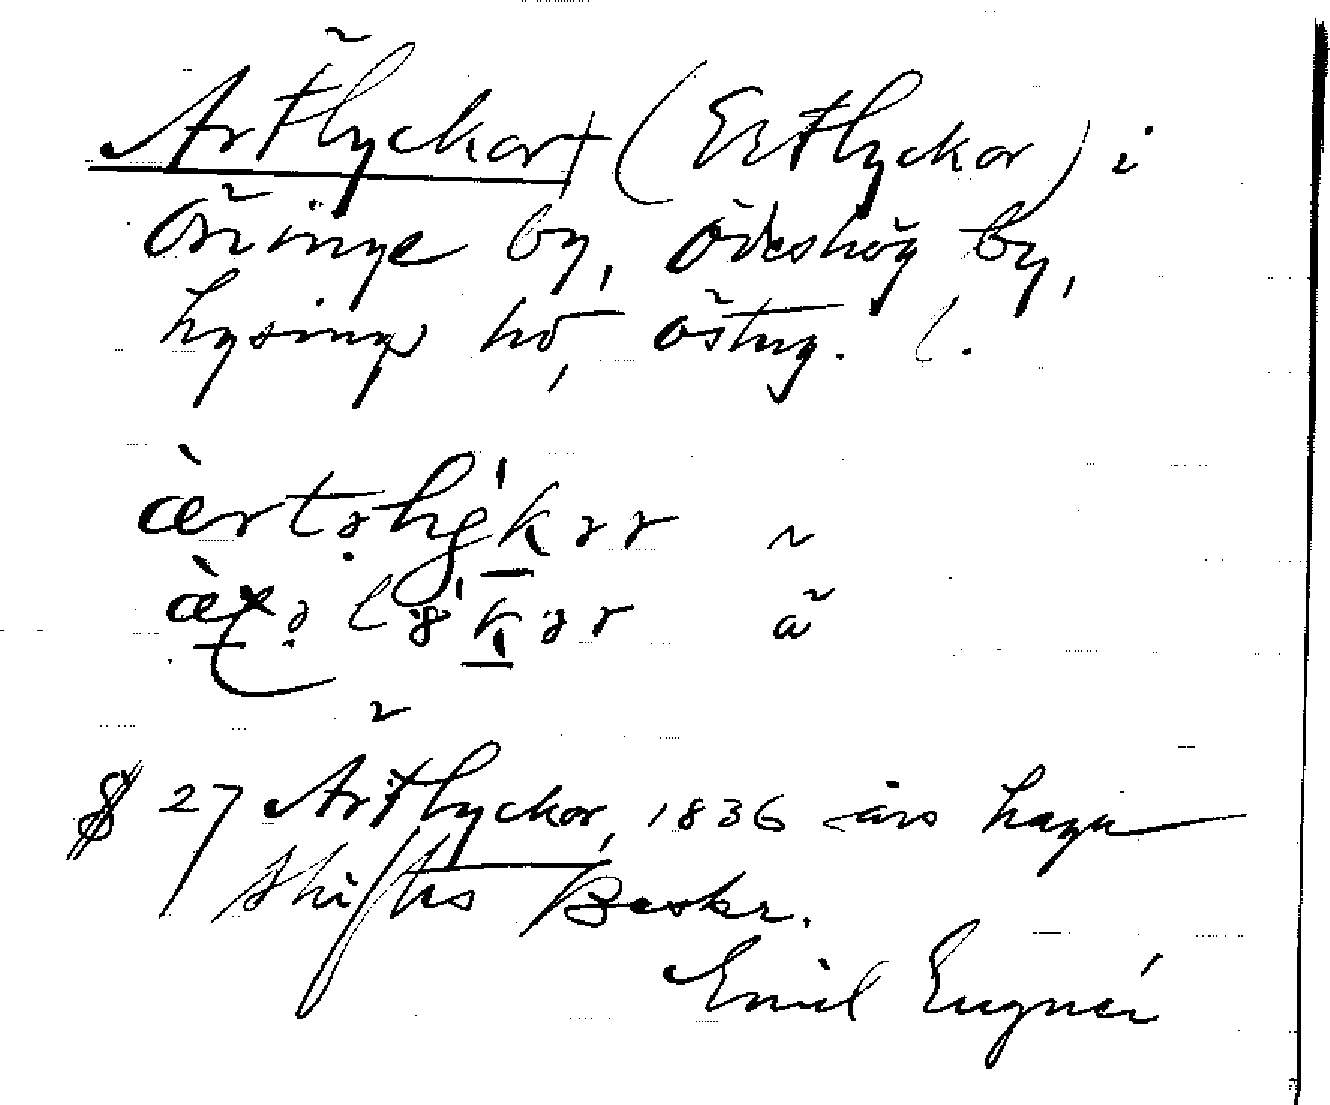 Ärtlyckor† (Ertlyckor) i
Öninge by, Ödeshög by,
Lysings hd, Östrg. l.
ærtəly̆kər ~
lykər ã
§ 27 Ärtlyckor, 1836 års laga
skiftes Beskr.
Emil Eugnér